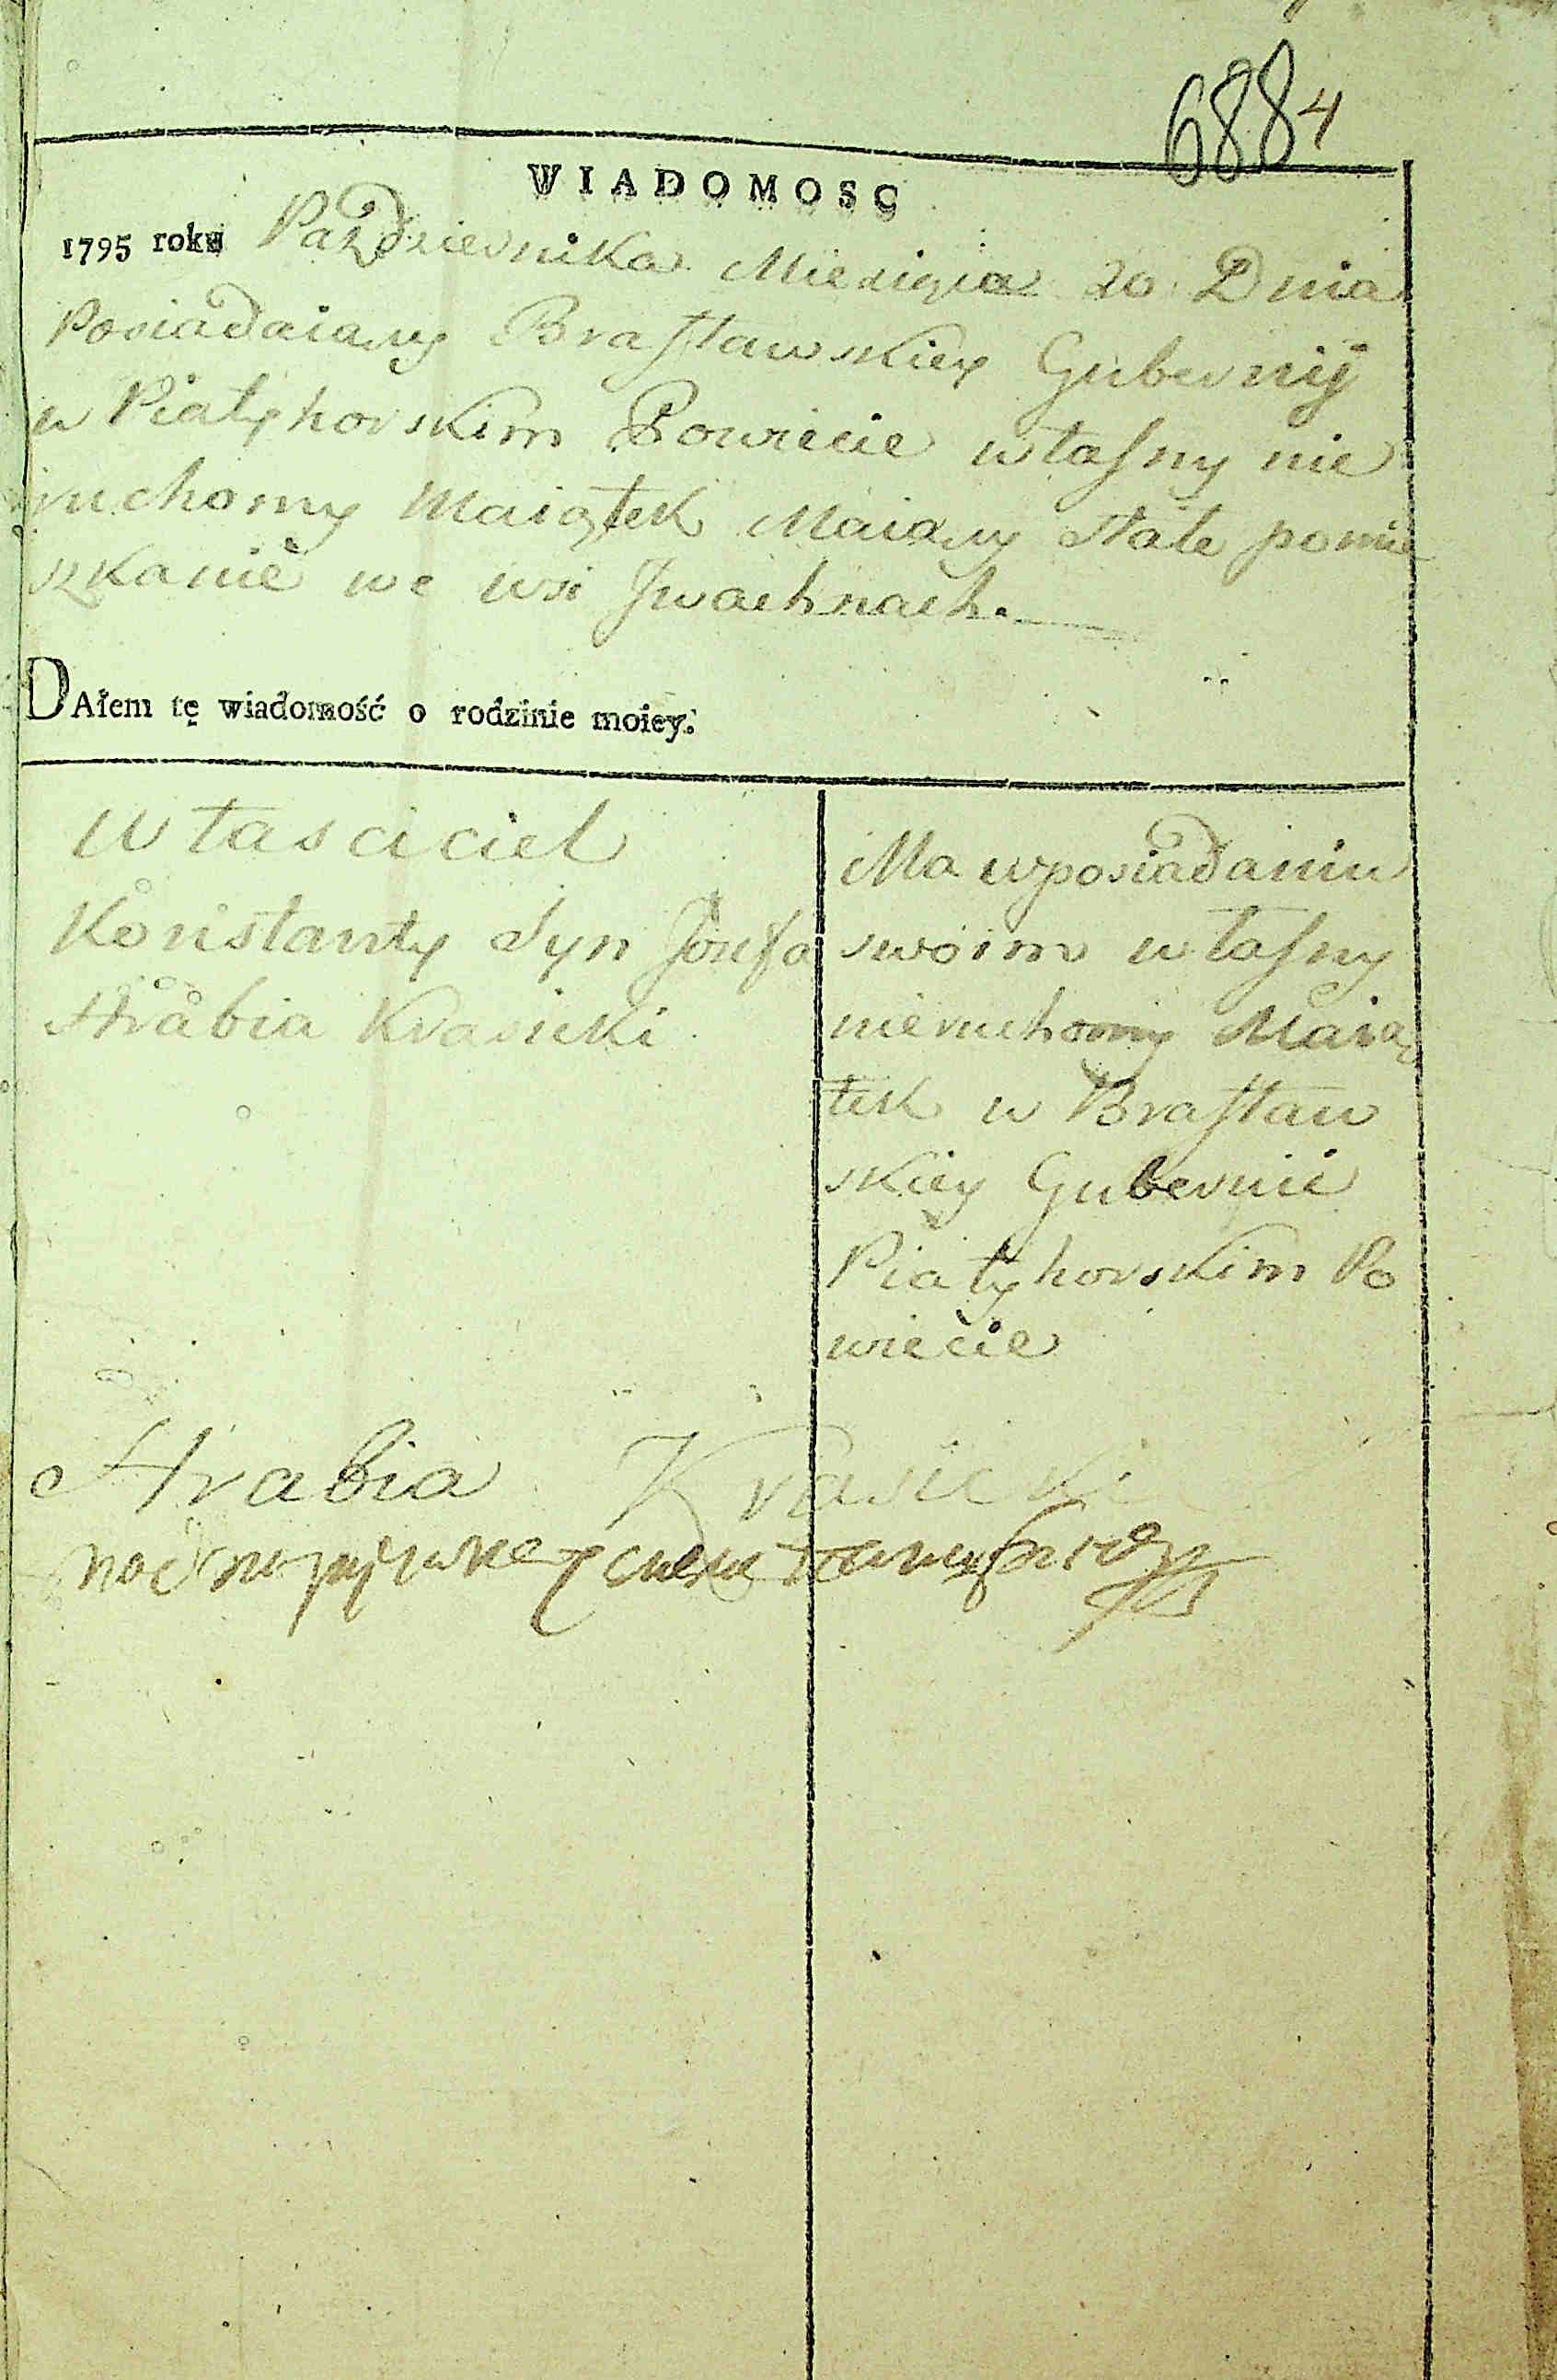 6884
WIADOMOSC
1795 roku Pazdziernika Miesiąca 20 Dnia
Posiadaiący Brasławskiey Gubernij
w Piatyhorskim Powiecie własny nie
ruchomy Maiątek Maiący stałe pomie
szkanie we wsi Jwachnach.
DAłem tę wiadomość o rodzinie moiey.
własciciel
Konstanty Syn Józefa
Hrabia Krasicki
Ma wposiadaniu
swoim własny
nieruchomy Maią
tek w Brasław
skiey Gubernii
Piatyhorskim Po
wiecie
Hrabia Krasicki